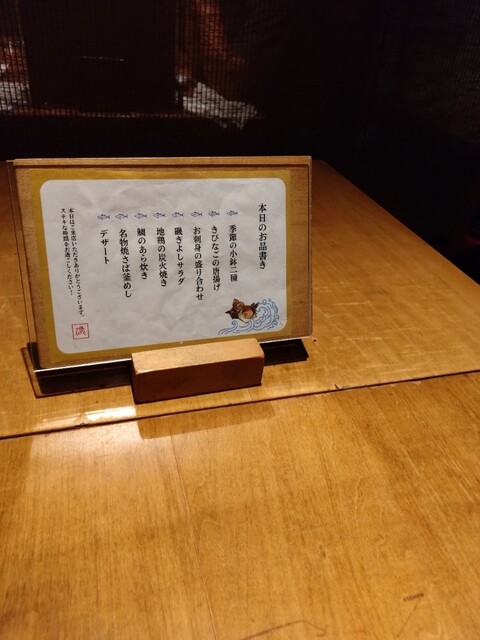 本日のお品書き
季節の小鉢二種
きびなごの唐揚げ
お刺身の盛り合わせ
磯ぎよしサラダ
地鶏の炭火焼き
鯛のあら炊き
名物焼さば釜めし
デザート
本日はご来店いただきありがとうございます。
ステキな時間をお過ごしください!
磯